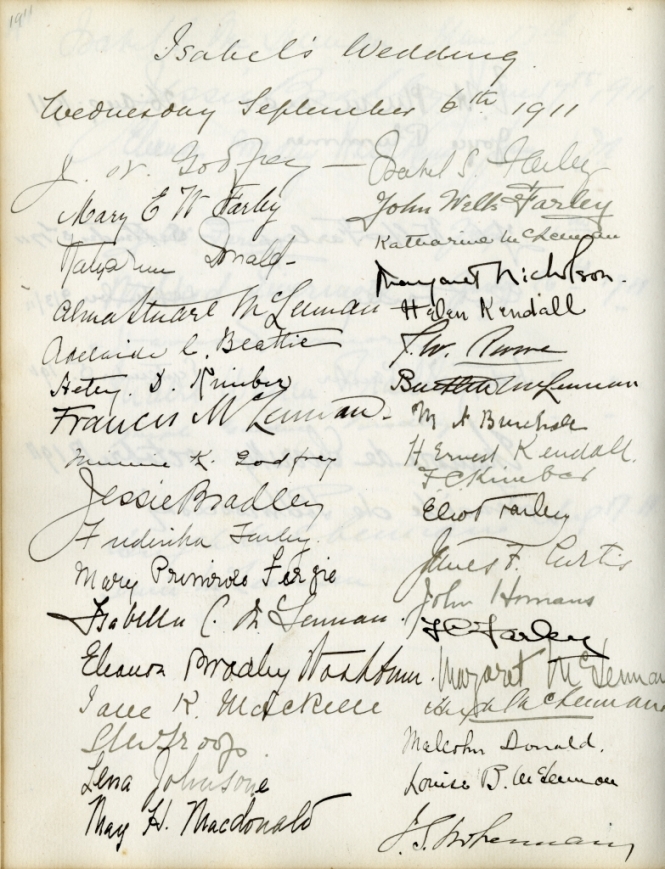 1911
Isabel's Wedding.
Wednesday September 6th 1911
J. W. Godfrey — Isabel S. Farley
Mary E W Farley
John Wells Farley
Katharine McLennan
Donald
Margaret Nicholson.
Alma Stuart McLennan
Helen Kendall
Adelaide C. Beattie
Hetey. D. Kimber
McLennan
Francis McLennan
M A Burchell
H Ernest Kendall.
Minnie K. Godfrey
F C Kimber
Jessie Bradley
Eliot Farley
Farley.
James F. Curtis
Mary Primrose Fergie
John Homans
Isabella C. McLennan.
F C Farley
Eleanor Bradley Washburn.
Margaret McLennan
K. McLennan
Malcolm Donald.
Lena Johnstone
Louise B. McLennan
May H. Macdonald